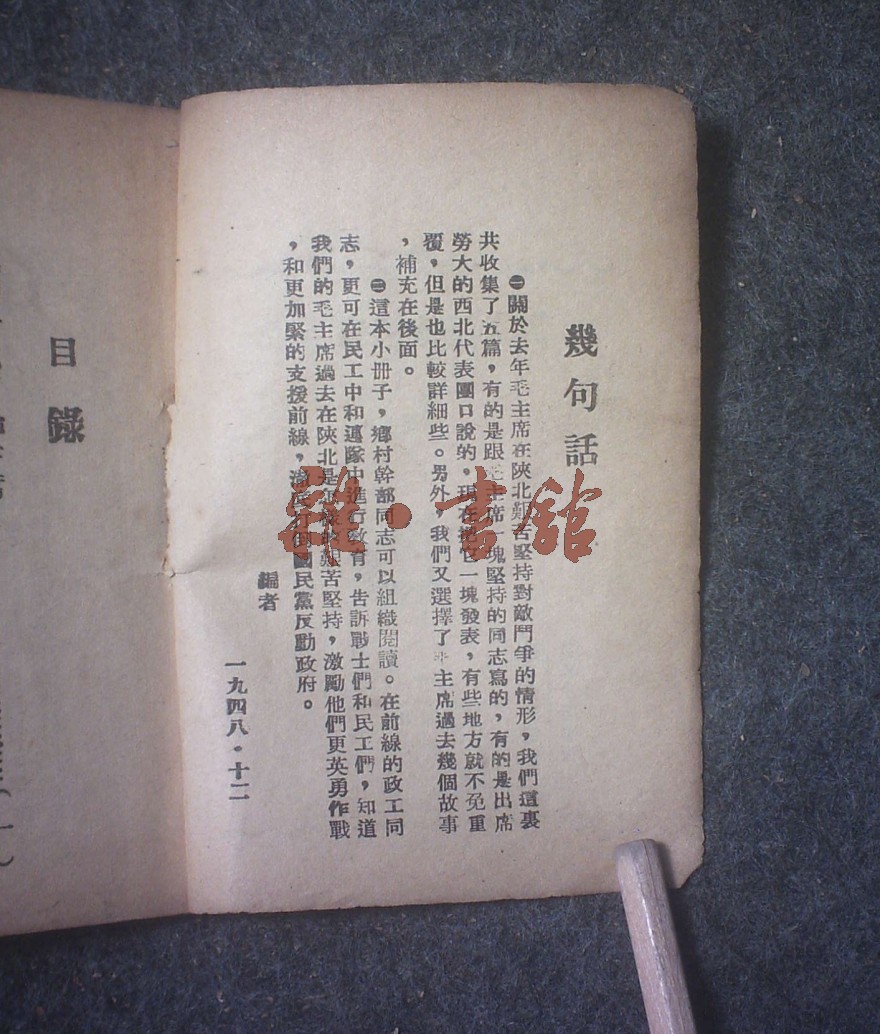 幾句話
㊀關於去年毛主席在陝北艱苦堅持對敵鬥爭的情形，我們這裏
共收集了五篇，有的是跟毛主席一塊堅持的同志寫的，有的是出席
勞大的西北代表團口說的，現在把它一塊發表，有些地方就不免重
覆，但是也比較詳細些。另外，我們又選擇了毛主席過去幾個故事
，補充在後面。
㊁這本小冊子，鄉村幹部同志可以組織閱讀。在前線的政工同
志，更可在民工中和連隊中進行教育，告訴戰士們和民工們，知道
我們的毛主席過去在陝北是怎樣的艱苦堅持，激勵他們更英勇作戰
，和更加緊的支援前線，國民黨反動政府。
編者
一九四八·十二
目錄
雜·書館